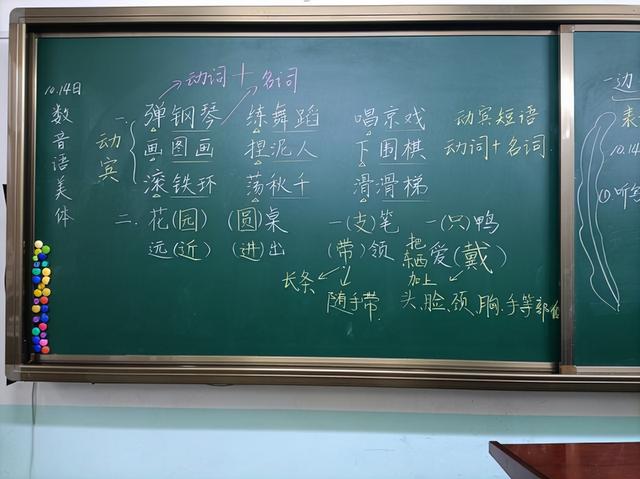 10.14日
数音语美体
动词+名词
一.
动宾
弹钢琴 练舞蹈 唱京戏 动宾短语
画图画 捏泥人 下围棋 动词+名词
滚铁环 荡秋千 滑滑梯
二.花(园) (圆)桌 一(支)笔 一(只)鸭
远(近) (进)出 (带)领 爱(戴)
把东西加上
长条
随手带
头、脸、颈、胸、手等部位
一边
表
10.14
①听